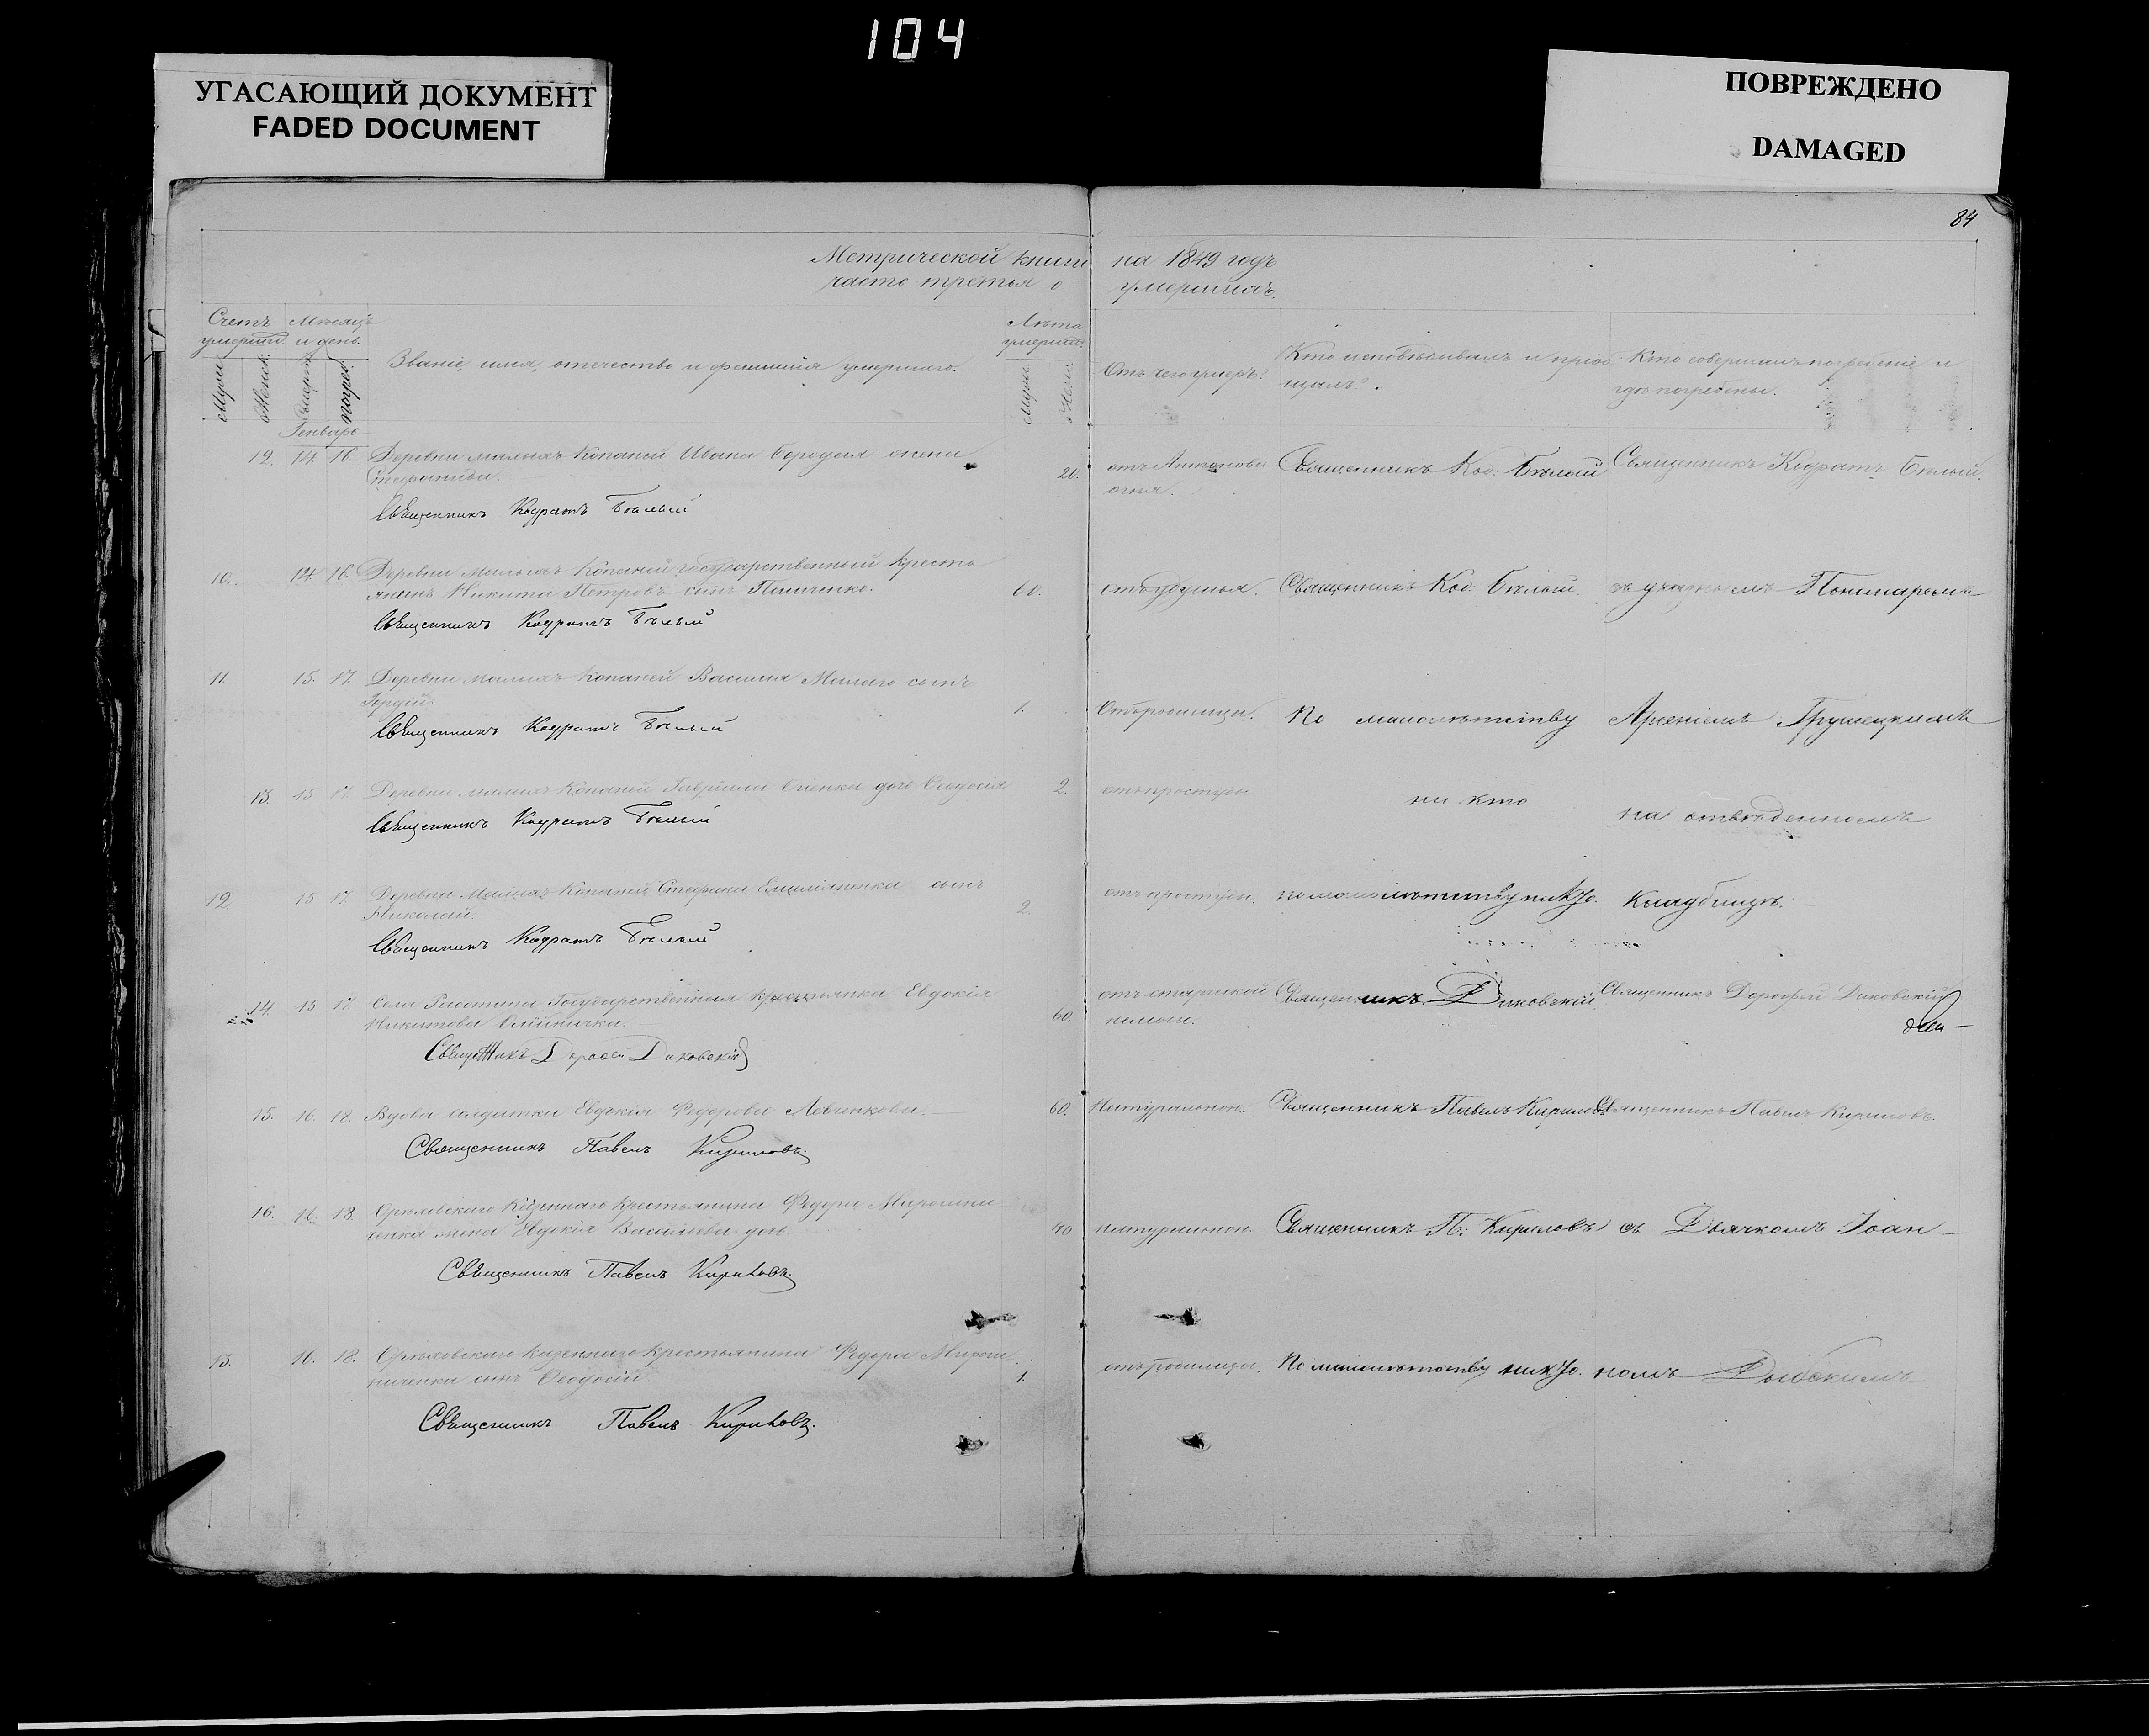 104
УГАСАЮЩИЙ ДОКУМЕНТ
FADED DOCUMENT
ПОВРЕЖДЕНО
DAMAGED
84
Метрической книги на 1849 годъ
часть третья о умершихъ.
Счетъ умерши. Мѣсяцъ и день. Званіе, имя, отечество и фамилія умершаго. Лѣта умершаго. Отъ чего умеръ? Кто исповѣдывалъ и пріобщалъ? Кто совершалъ погребеніе и гдѣ погребены.
Мужи. Женск. Смерти погреб. Мужи. Женс.
Генварь
12. 14. 16. Деревни малыхъ Копаней Ивана жена 20. отъ Антонова Священникъ Код: Бѣлый Священникъ Кодратъ Бѣлый.
Стефанида. огня.
Священникъ Кодратъ Бѣлый
10. 14 16. Деревни Малыхъ Копаней государственный кресть
янинъ Никита Петровъ сынъ 60. отъ удушья. Священникъ Код: Бѣлый. Пономаремъ
Священникъ Кодратъ Бѣлый
11 15. 17. Деревни малыхъ Копаней Василія Малаго сынъ
Гордій. 1. Отъ родимца. По малолѣтству Арсеніемъ Грушецкимъ
Священникъ Кодратъ Бѣлый
13. 15 17. Деревни малыхъ Копаней Гавріила дочь Ѳеодосія 2. отъ простуды ни кто на отведенномъ
Священникъ Кодратъ Бѣлый
12. 15 17. Деревни Малыхъ Копаней Стефана Емиліаненка сынъ 2. отъ простуды. по малолѣтству никто. Кладбищѣ.
Николай.
Священникъ Кодратъ Бѣлый
14. 15 17. Села Государственная крестьянка Евдокія 60. отъ старческой Священникъ Диковскій Священникъ Дорофей Диковскій
Никитова Олійничка. немощи.
Священникъ Дорофей Диковскій
15. 16. 18. Вдова солдатка Евдокія Федорова Левченкова. 60. Натуральной. Священникъ Павелъ Кириловъ Священникъ Павелъ Кириловъ.
Священникъ Павелъ Кириловъ.
16. 16. 18. Орѣховскаго Казеннаго крестьянина Федора Мирошни
ченка жена Евдокія Васильева дочь. 40 натуральной. Священникъ П: Кириловъ съ Дьячкомъ Іоан
Священникъ Павелъ Кириловъ.
13. 16. 18. Орѣховскаго казеннаго крестьянина Федора Мирош
ниченка сынъ Ѳеодосій. 1. отъ родимца. По малолѣтству никто. номъ
Священникъ Павелъ Кириловъ.